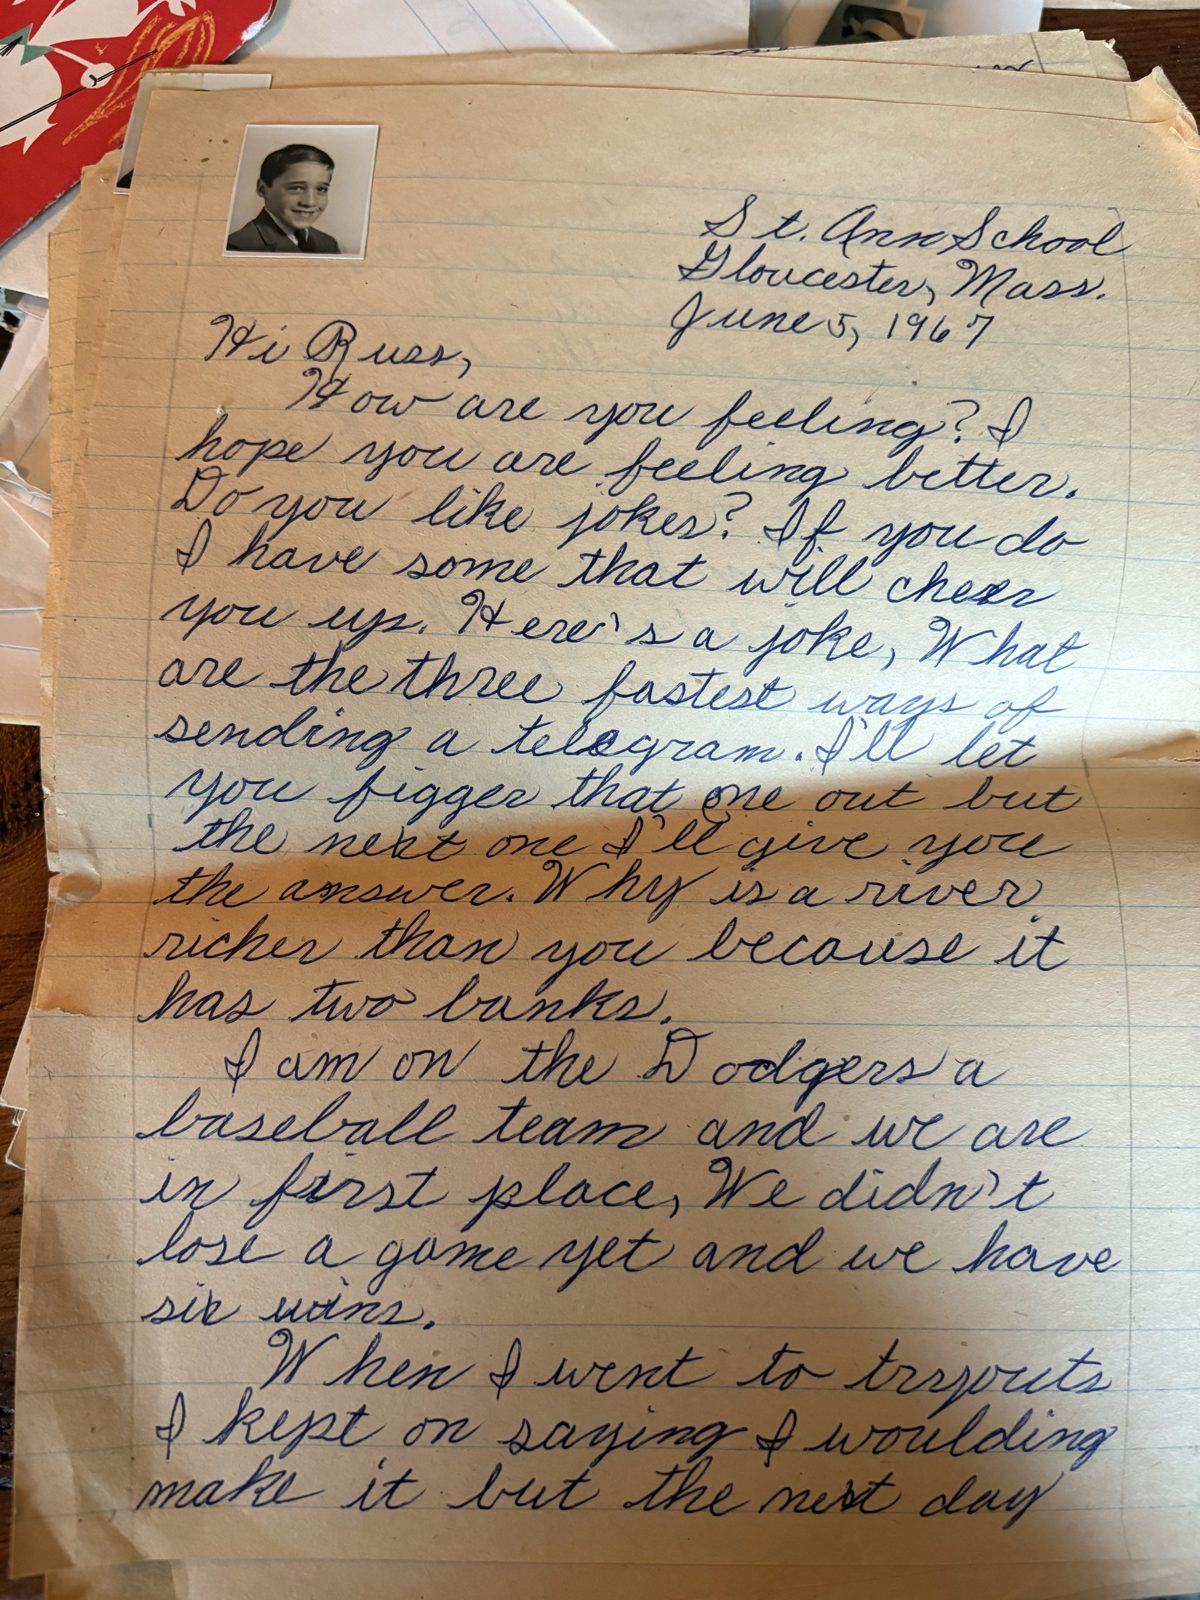 St. Ann School
Gloucester, Mass.
June 5, 1967
Hi Russ,
How are you feeling? I
hope you are feeling better.
Do you like jokes? If you do
I have some that will cheer
you up. Here's a joke, What
are the three fastest ways of
sending a telegram. I'll let
you figger that one out but
the next one I'll give you
the answer. Why is a river
richer than you because it
has two banks.
I am on the Dodgers a
baseball team and we are
in first place, We didn't
lose a game yet and we have
six wins.
When I went to tryouts
I kept on saying I woulding
make it but the next day